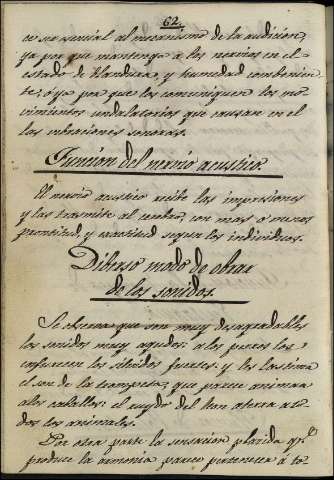 62.
ce ser esencial al mecanismo de la audicion,
ya por que mantenga a los nervios en el
estado de blandura, y humedad combenien
te; o ya por que los comuniquen los mo
vimientos undulatorios que causan en el
las vibraciones sonoras.
Funcion del nervio acustico.
El nervio acustico recibe las impresiones
y las trasmite al cerebro, con mas o menos
prontitud, y exactitud segun los individuos.
Diberso modo de obrar
de los sonidos.
Se observa que son muy desagradables
los sonidos muy agudos: a los perros los
enfurecen los silvidos fuertes, y les lastima
el son de la trompeta; que parece animar a
a los caballos: el ruydo del tan aterra a to
dos los animales.
Por otra parte la sensacion placida q.e
produce la armonia parece pertenecer a to